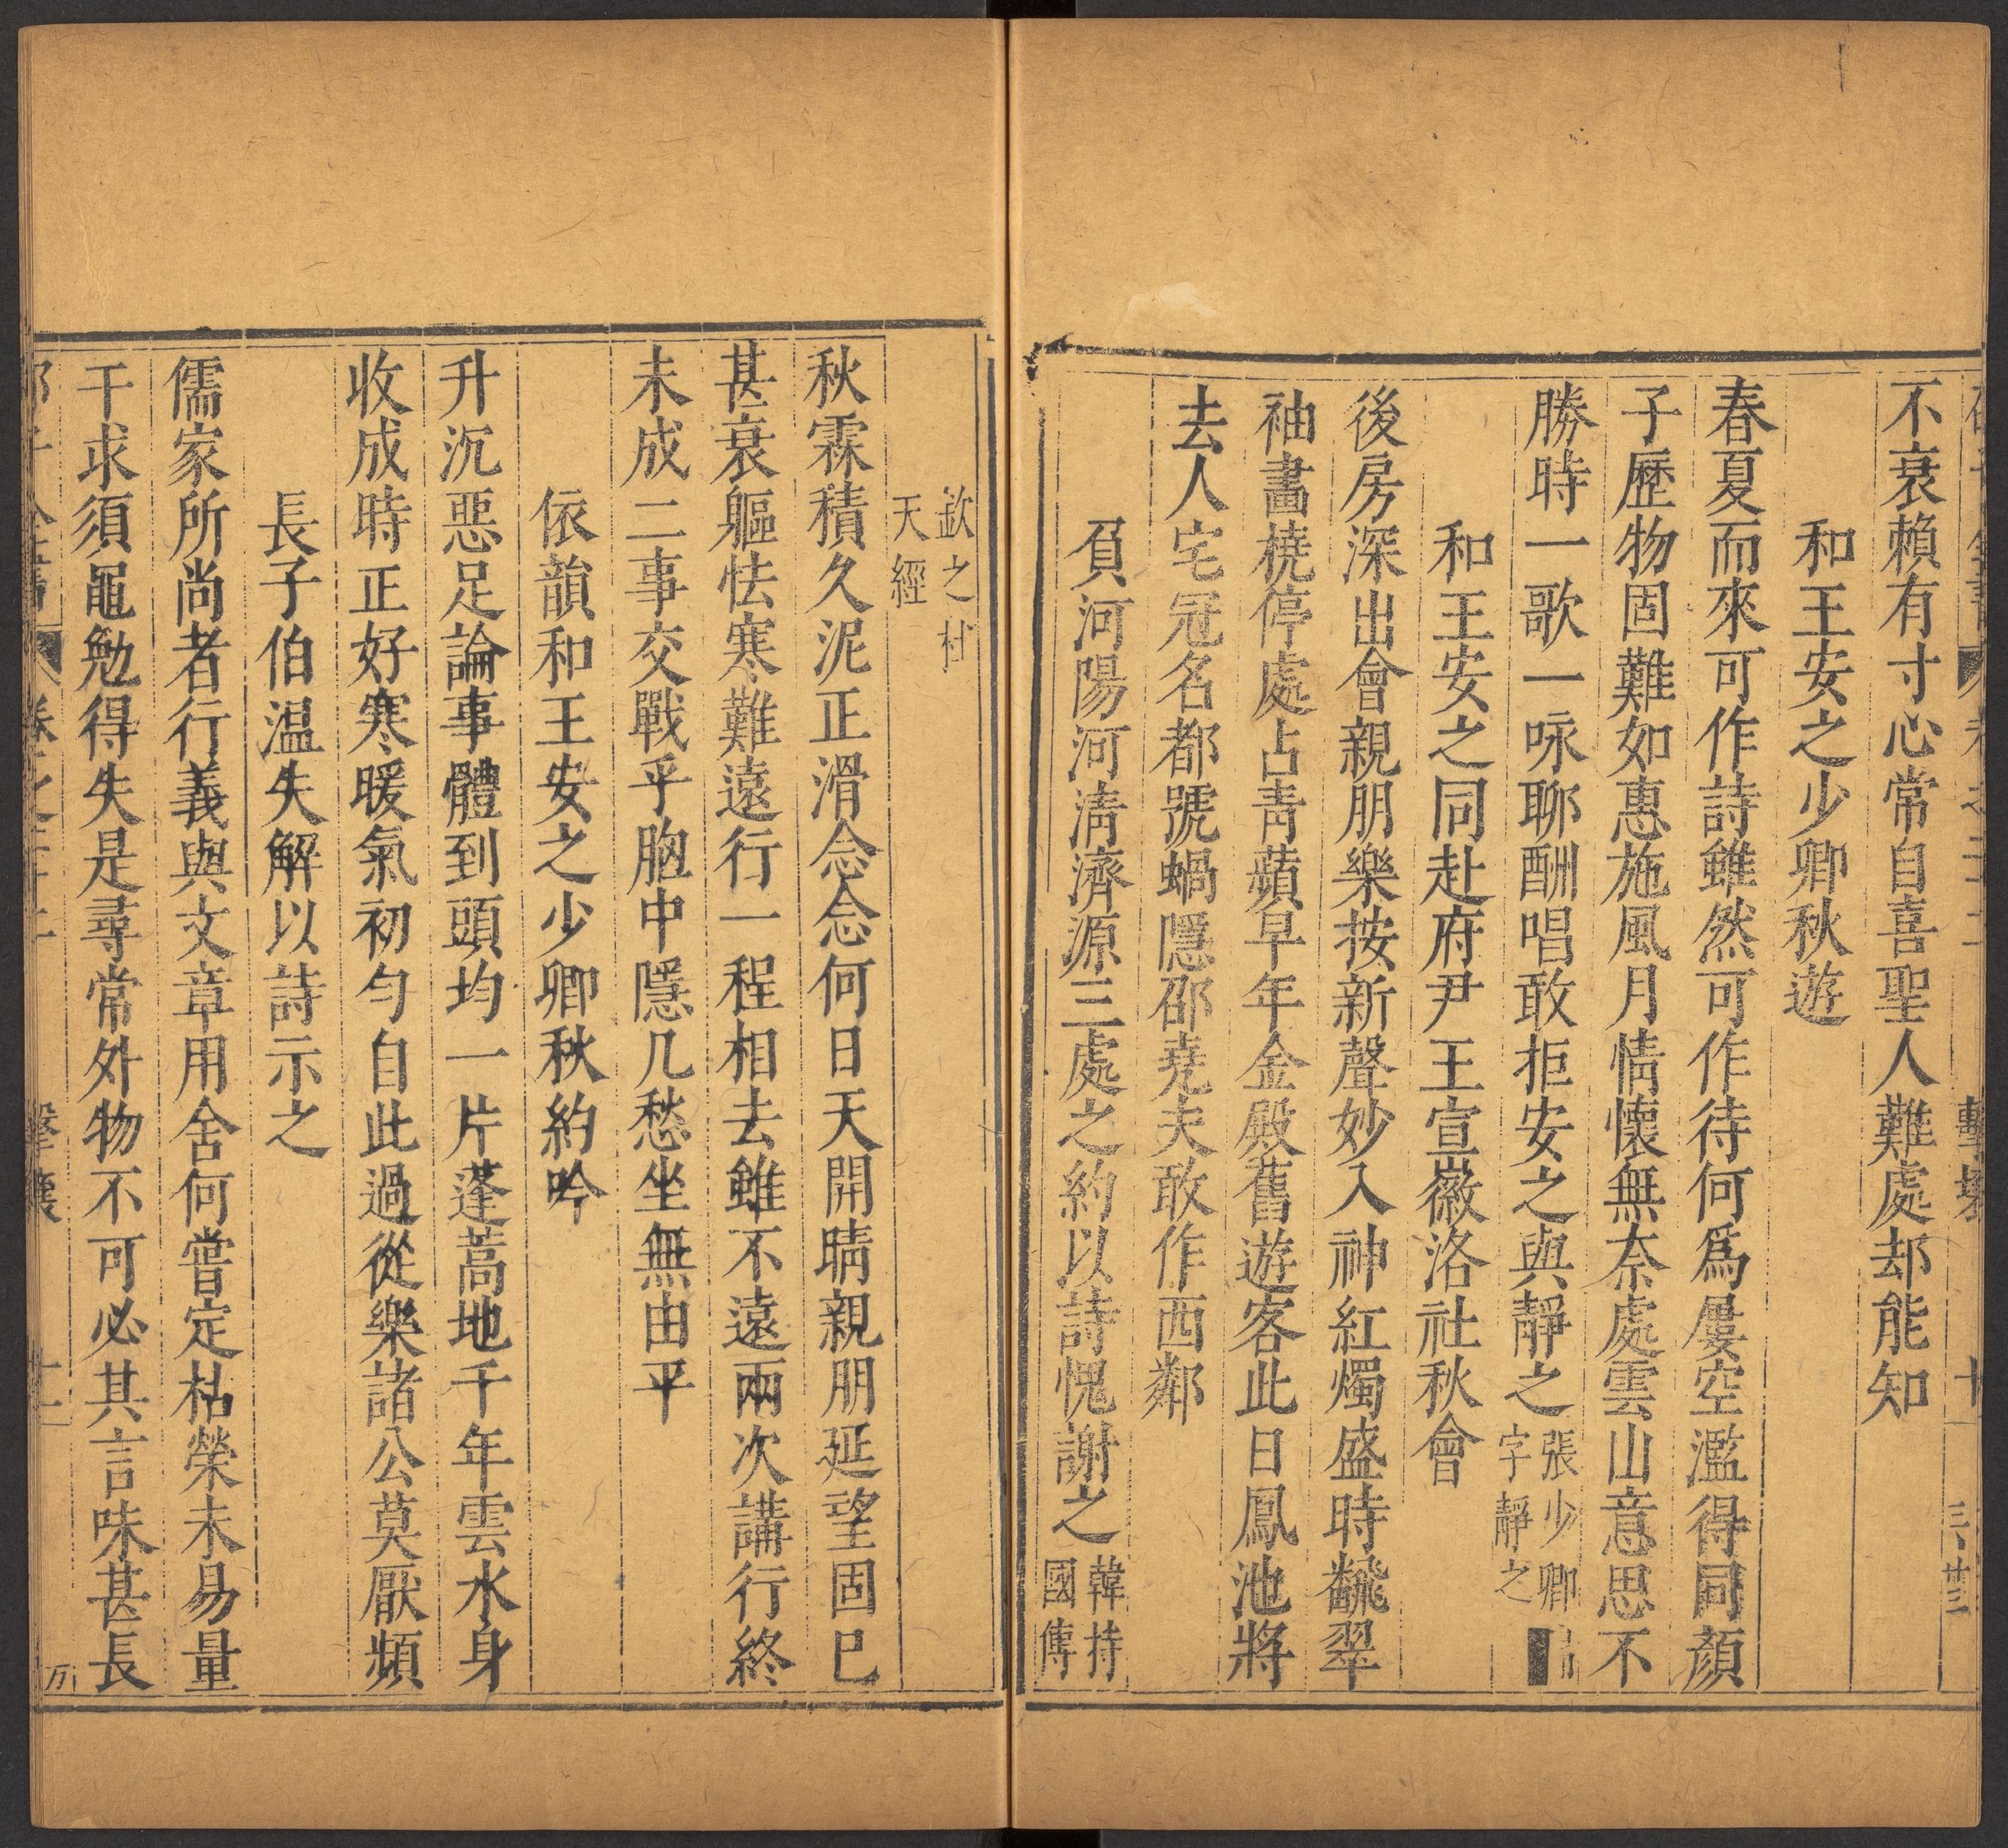 不衰賴有寸心常自喜聖人難處却能知
和王安之少卿秋遊
春夏而來可作詩雖然可作待何爲屢空濫得同顏
子歷物固難如惠施風月情懷無柰處雲山意思不
勝時一歌一咏聊酬唱敢拒安之與靜之
張少卿
字靜之
和王安之同赴府尹王宣徽洛社秋會
後房深出會親朋樂按新聲妙入神紅燭盛時飜翠
袖畫橈停處占靑蘋早年金殿舊遊客此日鳳池將
去人宅冠名都號蝸隱邵堯夫敢作西鄰
負河陽河淸濟源三處之約以詩愧謝之
韓持
國傅
欽之杜
天經
秋霖積久泥正滑念念何日天開晴親朋延望固已
甚衰軀怯寒難遠行一程相去雖不遠兩次講行終
未成二事交戰乎胸中隱几愁坐無由平
依韻和王安之少卿秋約吟
升沉惡足論事體到頭均一片蓬蒿地千年雲水身
收成時正好寒暖氣初勻自此過從樂諸公莫厭頻
長子伯温失解以詩示之
儒家所尚者行義與文章用舍何嘗定枯榮未易量
干求須黽勉得失是尋常外物不可必其言味甚長